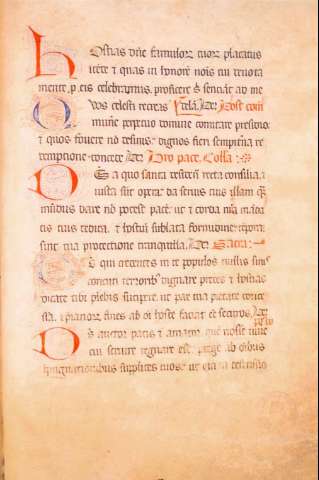 Hostias dñe famulorꝫ tuorꝫ placatus
& quas in honore nois tui deuota
mente p eis celebramus. proficere
uos celesti recreas Post com
mune perpetuo comitare presidio.
& quos fouere nō desinis. dignos fieri sempiterna re
demptione concede Pro pace. Colla
Ds a quo sancta desideria recta consilia. &
iusta sūt opera da seruis tuis illam qm̄
mūdus dare nō potest pacē. ut & corda nrā māda
tis tuis dedita. & hostiū sublata formidine tēpora.
sint tua protectione tranquilla. Sacra
Ds qui credentes in te populos nullis sinis
concuti terroribꝫ dignare preces & hostias
dicate tibi plebis suscipere. ut pax tua pietate concessa
fines ab oī hoste faciat
Ds auctor pacis & amator quē nosse uiuere
cui seruire regnare est. ptege ab oībus
īpugnationibus supplices tuos. ut